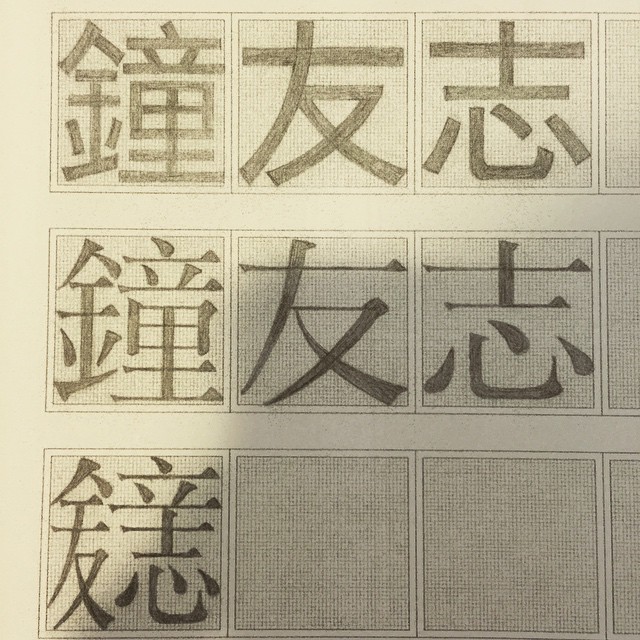 鐘友志
鐘友志